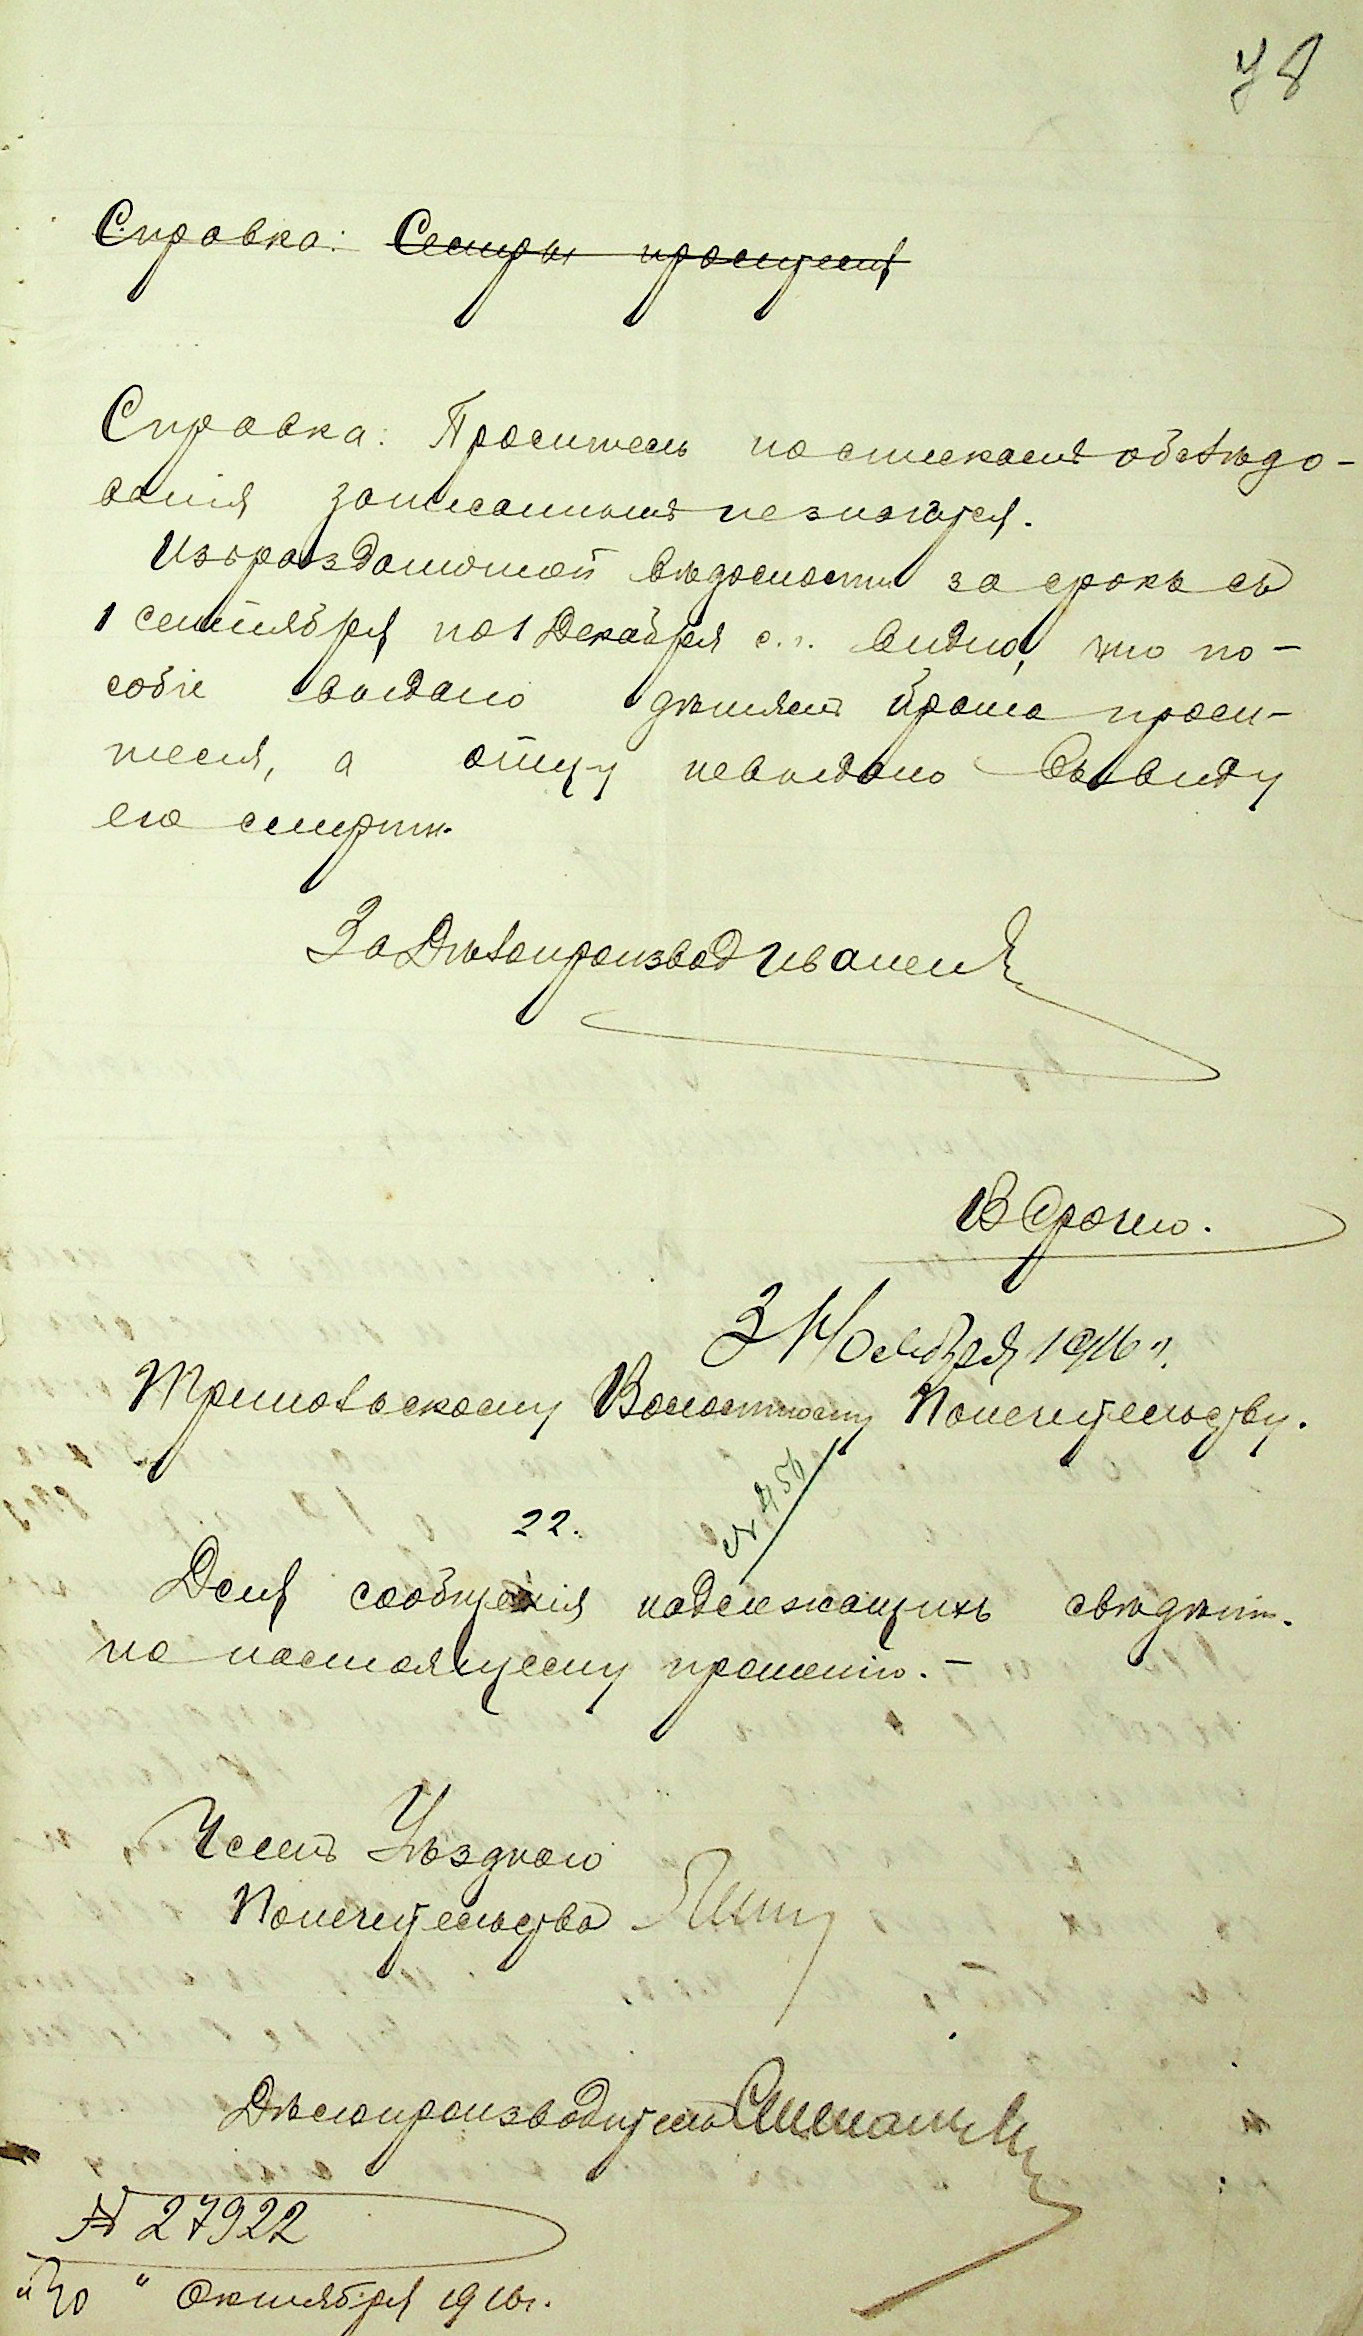 78
Справка: Сестры просителя
Справка: Проситель по спискамъ обслѣдо-
ванія записаннымъ не значится.
Изъ раздаточной вѣдомости за срокъ съ
1 сентября по 1 Декабря с.г. видно, что по-
собіе выдано дѣтямъ брата проси-
теля, а отцу невыдано въ виду
его смерти.
За Дѣлопроизвод
Срочно.
3 Ноября 1916 г.
Волостному Попечительству.
22.
№ 456
Для сообщенія надлежащихъ свѣдѣній.
по настоящему прошенію.-
Членъ Уѣзднаго
Попечительства
Дѣлопроизводитель
№ 27922
"30" Октября 1916г.